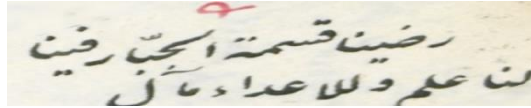 رضينا قسمة الجبّار فينا
لنا علم وللاعداء مال